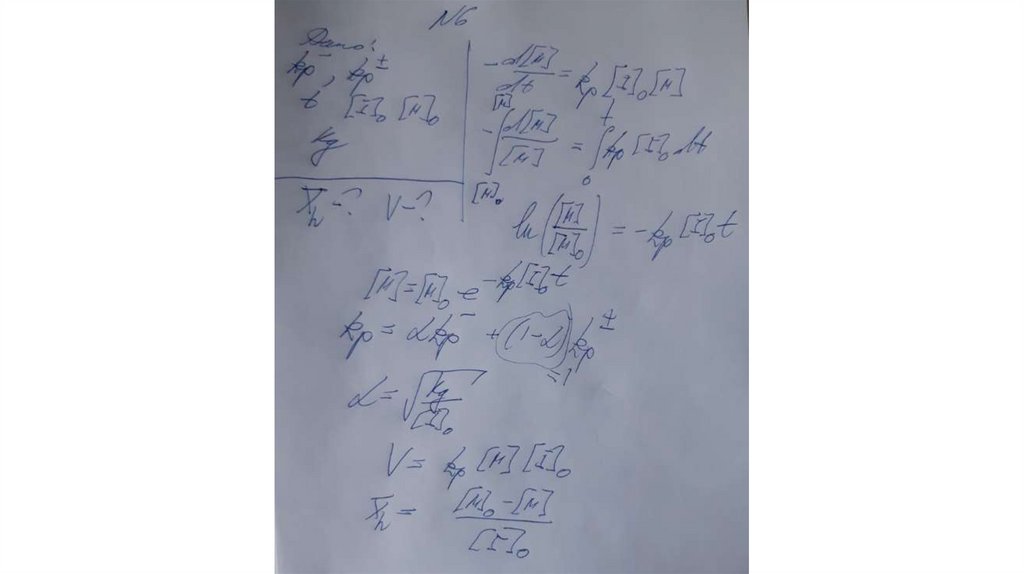 N6
Дано:
kp⁻, kp±
t [I]₀ [M]₀
Kg
X̄n-? V-?
-d[M]/dt = kp [I]₀ [M]
-∫_{[M]₀}^{[M]} d[M]/[M] = ∫₀^t kp [I]₀ dt
ln([M]/[M]₀) = -kp [I]₀ t
[M] = [M]₀ e^{-kp[I]₀t}
kp = αkp⁻ + (1-α) kp±
=1
α = √(Kg/[I]₀)
V = kp [M] [I]₀
X̄n = ([M]₀ - [M])/[I]₀